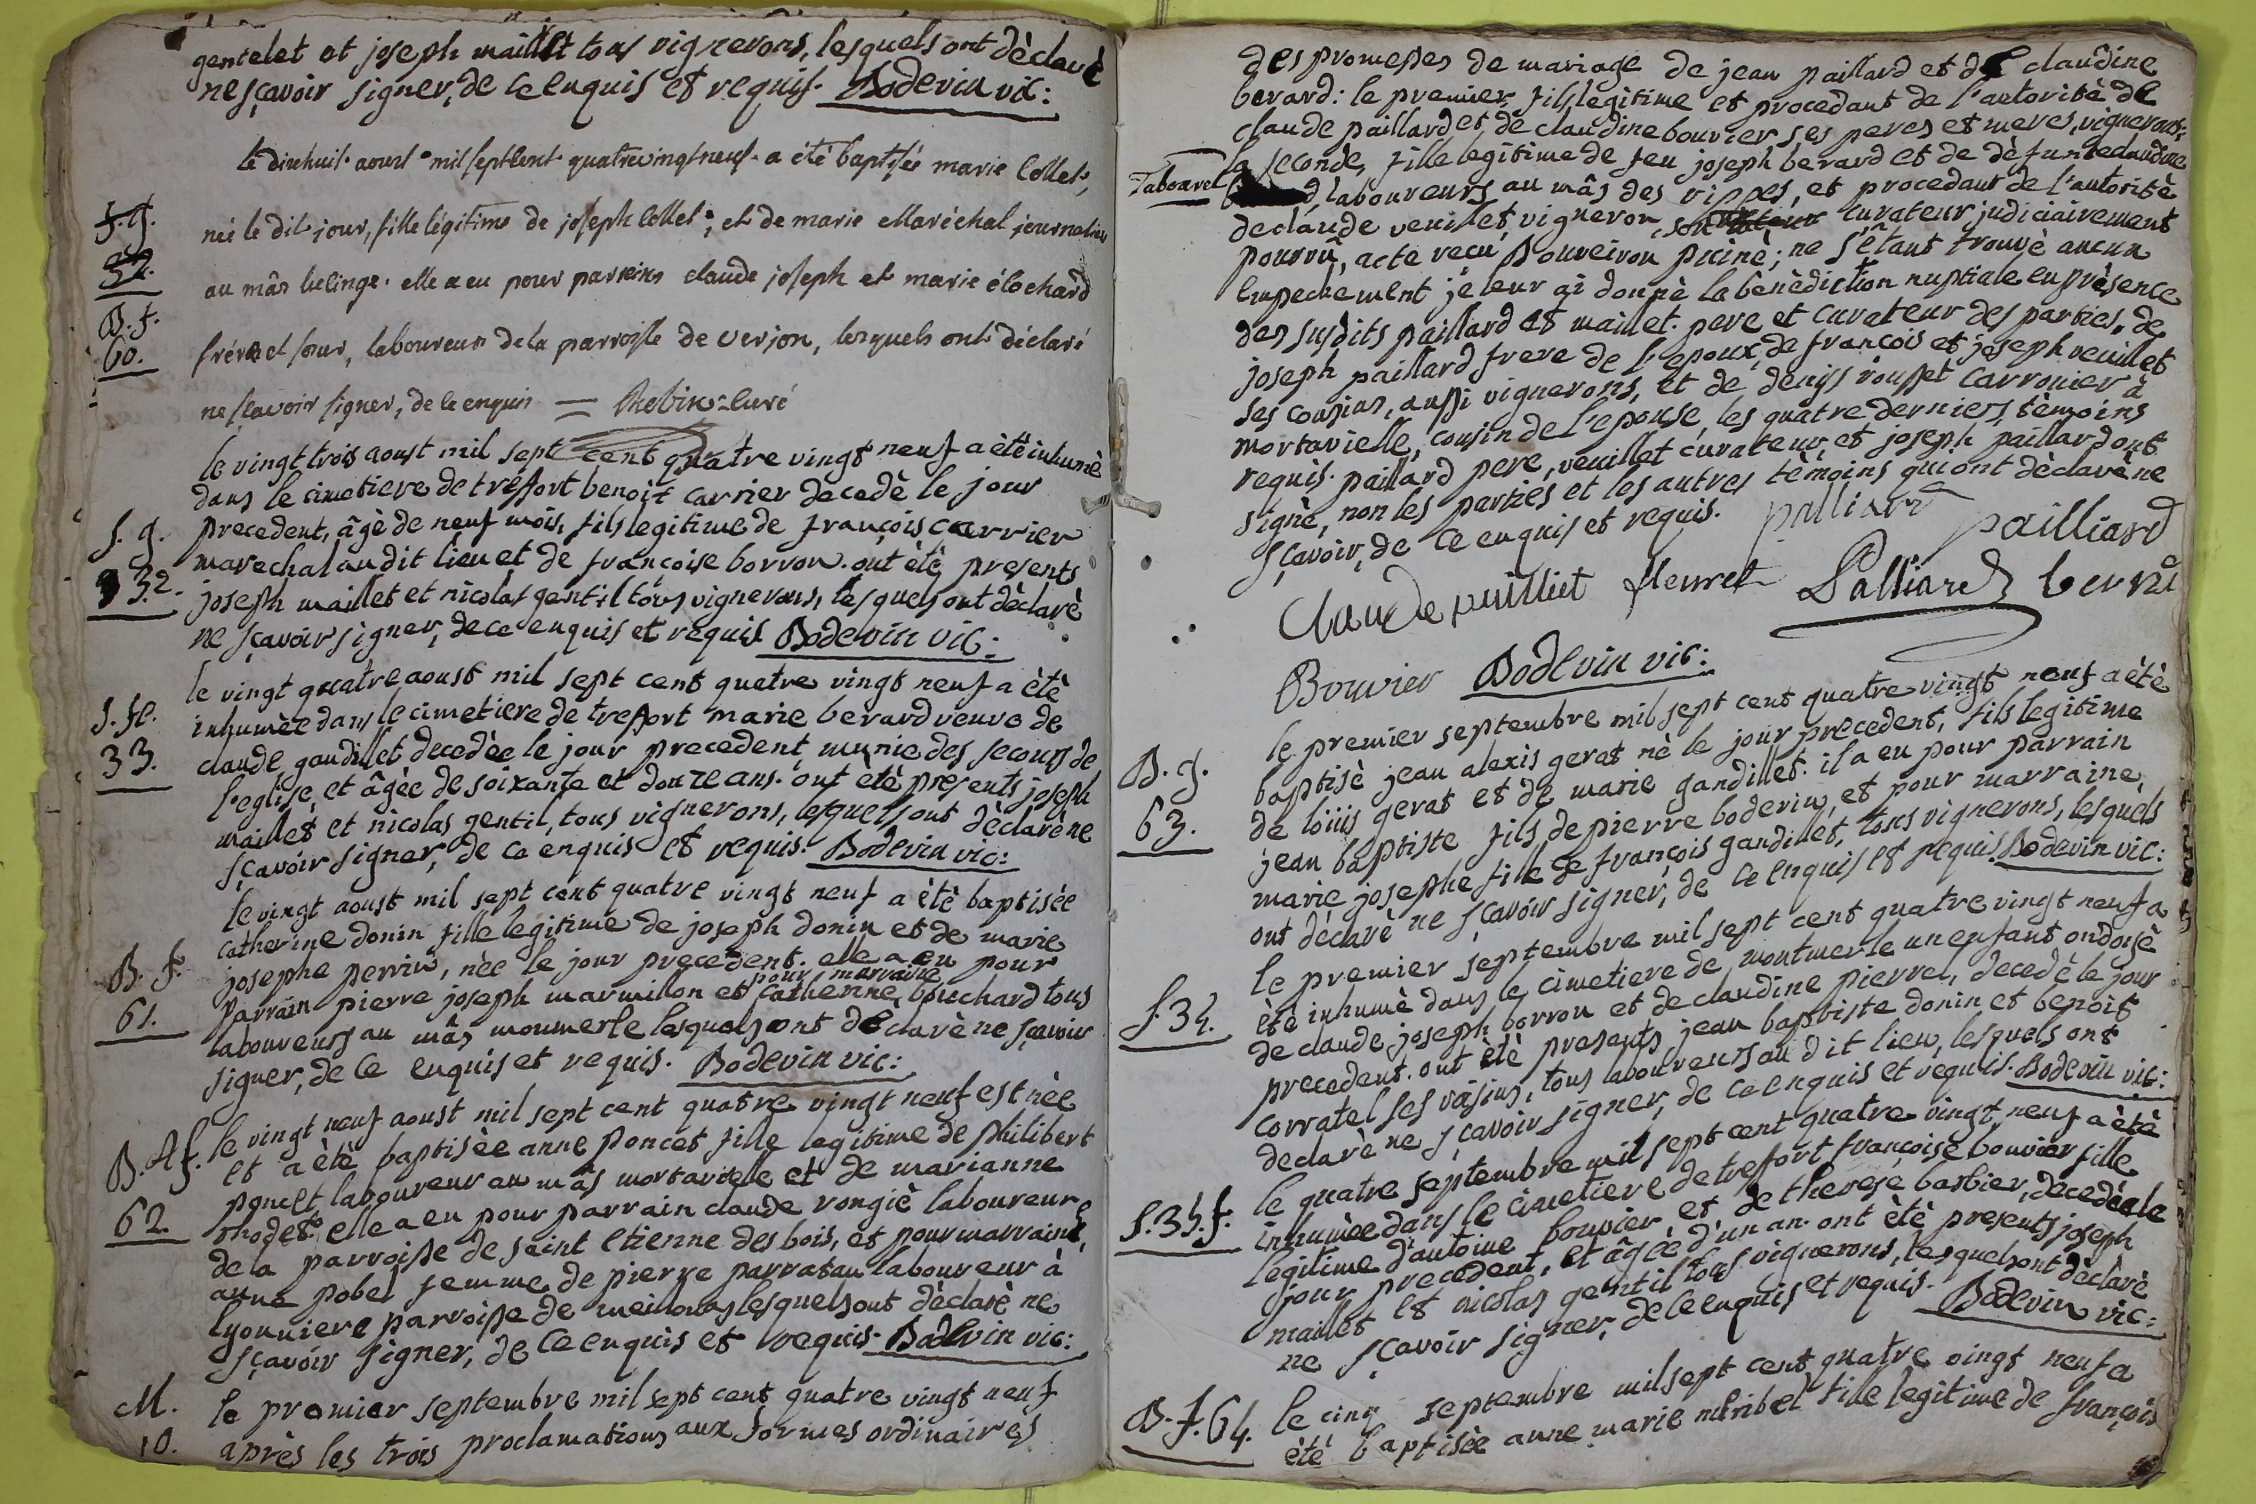 gentelet et joseph maillet tous vignerons, lesquels ont dèclarè
ne sçavoir signer, de ce enquis et requis. Bodevin vic:
Le dixhuit aoust mil septcent quatrevingtneuf a été baptisée marie Collet,
née le dit jour, fille légitime de joseph Collet, et de marie Maréchal journaliers
au mâs belinge. elle a eu pour parreins claude joseph et marie élochard
fréres et sœur, laboureurs de la parroisse de verjon, lesquels ont déclaré
ne sçavoir signer, de ce enquis = Robin curé
B. f.
60.
le vingt trois aoust mil sept cent quatre vingt neuf a ètè inhumè
dans le cimetiere de treffort benoit carrier decedè le jour
precedent, âgè de neuf mois, fils legitime de françois carrier
marechal au dit lieu et de françoise borron. ont ètè presents
joseph maillet et nicolas gentil tous vignerons, lesquels ont dèclarè
ne sçavoir signer, de ce enquis et requis Bodevin vic:
S. g.
32.
le vingt quatre aoust mil sept cent quatre vingt neuf a ètè
inhumèe dans le cimetiere de treffort marie berard veuve de
claude gaudillet decedèe le jour precedent, munie des secours de
l'eglise, et âgèe de soixante et douze ans. ont ètè presents joseph
maillet et nicolas gentil, tous vignerons, lesquels ont dèclarè ne
sçavoir signer, de ce enquis et requis. Bodevin vic:
S. fe.
33.
le vingt aoust mil sept cent quatre vingt neuf a ètè baptisèe
catherine donin fille legitime de joseph donin et de marie
josephe perrin, nèe le jour precedent. elle a eu pour
parrain pierre joseph marmillon et pour marraine catherine bouchard tous
laboureurs au mâs moumerle lesquels ont dèclarè ne sçavoir
signer, de ce enquis et requis. Bodevin vic:
B. f.
61.
le vingt neuf aoust mil sept cent quatre vingt neuf est nèe
et a ètè baptisèe anne poncet fille legitime de philibert
poncet, laboureur au mâs mortavielle et de marianne
rhodet. elle a eu pour parrain claude rongiè laboureur
de la parroisse de saint etienne des bois, et pour marraine,
anne pobel femme de pierre parratau laboureur à
lyonniere parroisse de meillonas lesquels ont dèclarè ne
sçavoir signer, de ce enquis et requis. Bodevin vic:
B. f.
62.
le premier septembre mil sept cent quatre vingt neuf
après les trois proclamations aux formes ordinaires
M.
10.
des promesses de mariage de jean paillard et de claudine
berard: le premier fils legitime et procedant de l'autoritè de
claude paillard et de claudine bouvier ses peres et meres, vignerons;
la seconde, fille legitime de feu joseph berard et de dèfunte claudine
Tabouret, laboureurs au mâs des vippes, et procedant de l'autoritè
de claude veuillet, vigneron, curateur judiciairement
pourvû, acte reçu Bouveiron puinè; ne s'ètant trouvè aucun
empechement je leur ai donnè la bènèdiction nuptiale en prèsence
des susdits paillard et maillet. pere et curateur des parties, de
joseph paillard frere de l'epoux, de françois et joseph veuillet
ses cousins, aussi vignerons, et de denys rousset carronier à
mortavielle, cousin de l'epouse, les quatre derniers, tèmoins
requis. paillard pere, veuillet curateur, et joseph paillard ont
signè, non les parties et les autres tèmoins qui ont dèclarè ne
sçavoir, de ce enquis et requis. palliard pailliard
Claude vuilliet fleuret Palliard bernd
Bouvier Bodevin vic:
le premier septembre mil sept cent quatre vingt neuf a ètè
baptisè jean alexis gerat nè le jour precedent, fils legitime
de loüis gerat et de marie gandillet. il a eu pour parrain
jean baptiste fils de pierre bodevin, et pour marraine,
marie josephe fille de françois gandillet, tous vignerons, lesquels
ont dèclarè ne sçavoir signer, de ce enquis et requis Bodevin vic:
B. g.
63.
le premier septembre mil sept cent quatre vingt neuf a
ètè inhumè dans le cimetiere de montmerle un enfant ondoyè
de claude joseph borron et de claudine pierrel, decedè le jour
precedent. ont ètè presents jean baptiste donin et benoit
corratel ses voisins, tous laboureurs au dit lieu, lesquels ont
declarè ne sçavoir signer, de ce enquis et requis. Bodevin vic:
S. 34.
le quatre septembre mil sept cent quatre vingt neuf a ètè
inhumèe dans le cimetiere de treffort françoise bouvier fille
legitime d'antoine bouvier et de therese barbier, decedèe le
jour precedent, et âgèe d'un an. ont ètè presents joseph
maillet et nicolas gentil tous vignerons, lesquels ont dèclarè
ne sçavoir signer, de ce enquis et requis. Bodevin vic:
S. 35. f.
le cinq septembre mil sept cent quatre vingt neuf a
ètè baptisèe anne marie miribel fille legitime de françois
B. f. 64.